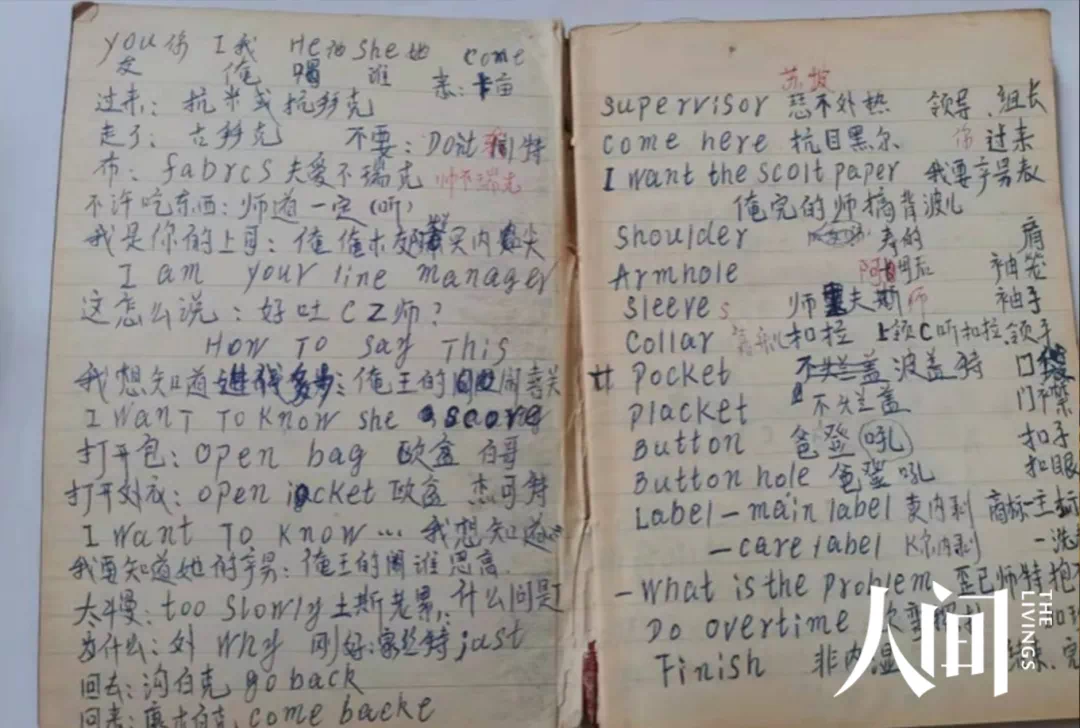 you你 I我 He他 she她 come
友 俺 喝 谁 来:卡亩
过来:抗米或抗穆克
走了:古穆克 不要:DO过 特
布:fabrcs 夫爱不瑞克 帅不瑞克
不许吃东西:师道一定(听)
我是你的上司:俺俺木友
I am your line manager
这怎么说:好吐CZ师?
HOW TO say This
我想知道 :俺王的
I want To know she score
打开包:open bag 欧盆 白哥
打开外衣:open jacket 欧盆 杰可特
I want To know… 我想知道
我要知道她的 :俺王的闹谁思高
太慢:too slowly 土斯老累 什么问是
为什么:外 why 刚好: 特 just
回去:沟白克 go back
回来:康木白克 come backe
苏坡
supervisor 不外热 领导、组长
come here 抗目黑尔 你 过来
I want the scolt paper 我要 表
俺完的师 背波儿
shoulder 寿的 肩
Armhole 阿 后 袖笼
sleeves 师 夫斯师 袖子
collar 扣拉 上领C听扣拉 领子
Pocket 不烂盖 波盖特 口袋
placket 不烂盖 门襟
Button 爸登(吼) 扣子
Button hole 爸登吼 扣眼
Label-main label 卖内剥 商标-主标
-care label K尔内剥 -洗
-What is the problem 歪己师特抱
Do overtime
Finish 非内湿 结束、完
人间 THE LIVINGS